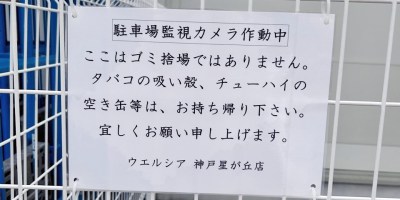 駐車場監視カメラ作動中
ここはゴミ捨場ではありません。
タバコの吸い殻、チューハイの
空き缶等は、お持ち帰り下さい。
宜しくお願い申し上げます。
ウエルシア 神戸星が丘店